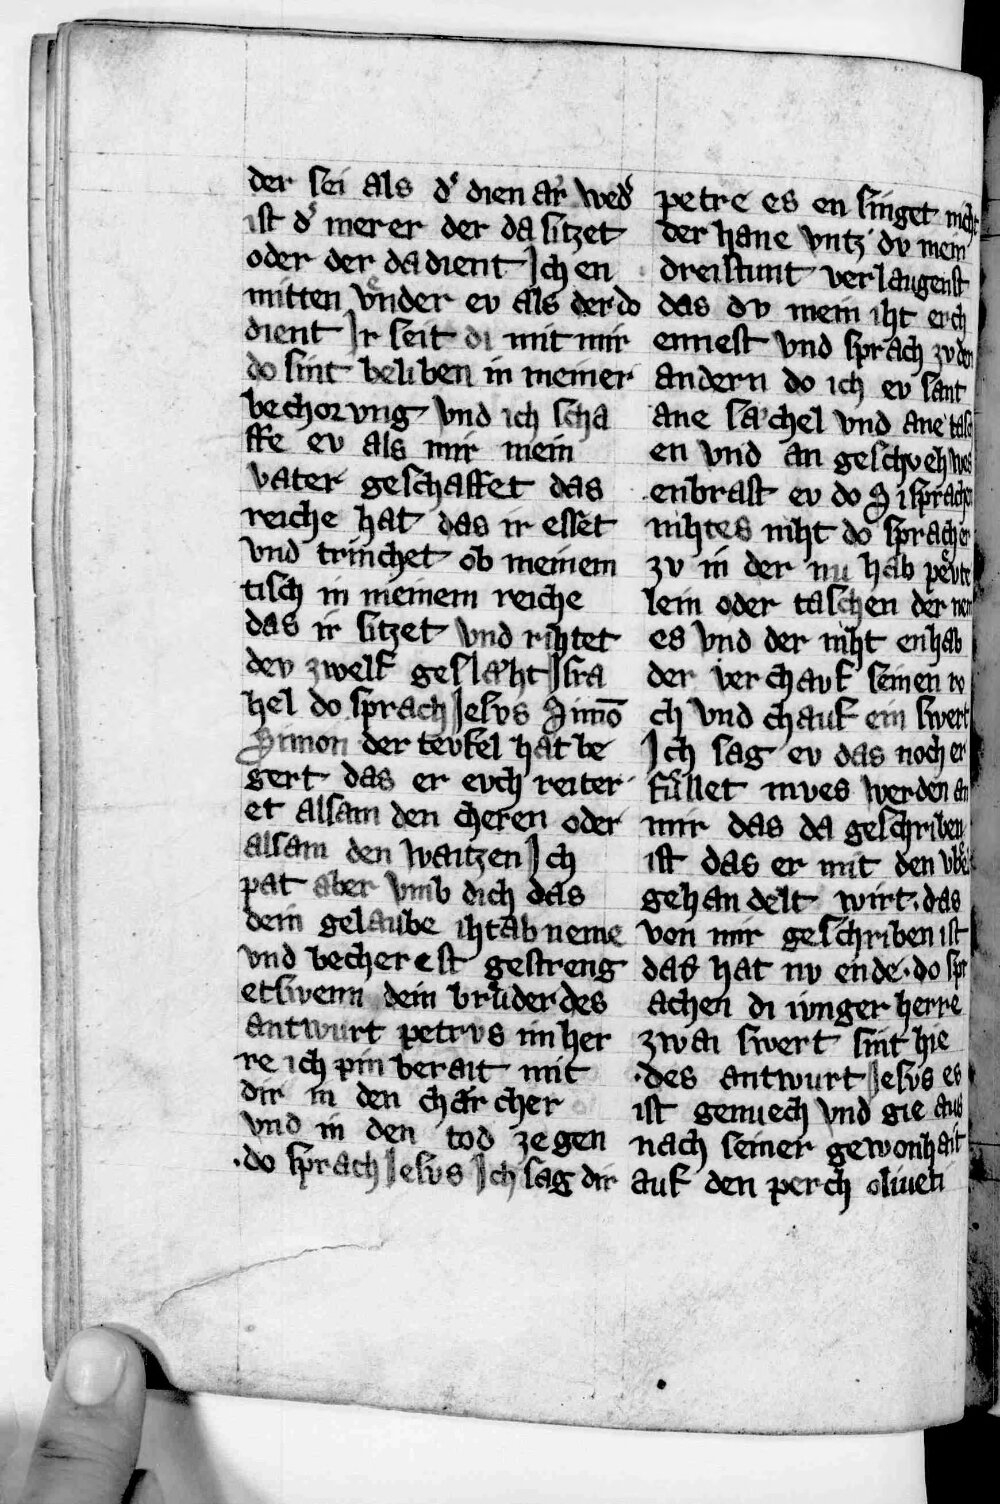 der sei als d͛ dienar wed͛
ist d͛ merer der da sitzet
oder der da dient Ich en
mitten vͤnder ev als der do
dient Ir seit di mit mir
do sint beliben in meiner
bechorvng vnd ich scha
ffe ev als mir mein
vater geschaffet das
reiche hat das ir esset
vnd trinchet ob meinem
tisch in meinem reiche
das ir sitzet vnd rihtet
dev zwelf geslaͤht Isra
hel do sprach Jesvs Simō
Simon der tevfel hat be
gert das er evch reiter
et alsam den cheren oder
alsam den waitzen Ich
pat aber vmb dich das
dein gelaube iht ab neme
vnd becherest gestreng
etswenn dein brůder des
antwurt petrvs im her
re ich pin berait mit
dir in den charcher
vnd in den tod ze gen
·do sprach Jesvs Ich sag dir
petre es en singet
der hane vntz dv mein
dreistunt verlaugenst
das dv mein iht erch
ennest vnd sprach zv den
andern do ich ev sant
ane saͤchel vnd ane tasch
en vnd an geschveh wes
enbrast ev do Si sprachen
nihtes niht do sprach er
zv in der nu hab pevte
lein oder taschen der nem
es vnd der niht enhab
der verchauf seinen ro
ch vnd chauf ein swert
Ich sag ev das noch er
fuͤllet mves werden an
mir das da geschriben
ist das er mit den vbeln
gehandelt wirt·das
von mir geschriben ist
das hat nv ende·do spr
achen di ivnger herre
zwai swert sint hie
·des antwurt Jesvs es
ist genuech vnd gie aus
nach seiner gewonhait
auf den perch oliueti